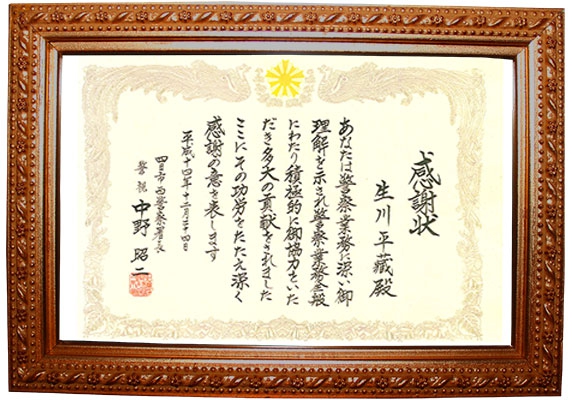 感謝状
生川平蔵殿
あなたは警察業務に深い御
理解を示され警察業務全般
にわたり積極的に御協力をいた
だき多大の貢献をされました
ここにその功労をたたえ深く
感謝の意を表します
平成十四年十二月二十四日
四日市西警察署長
警視 中野昭二